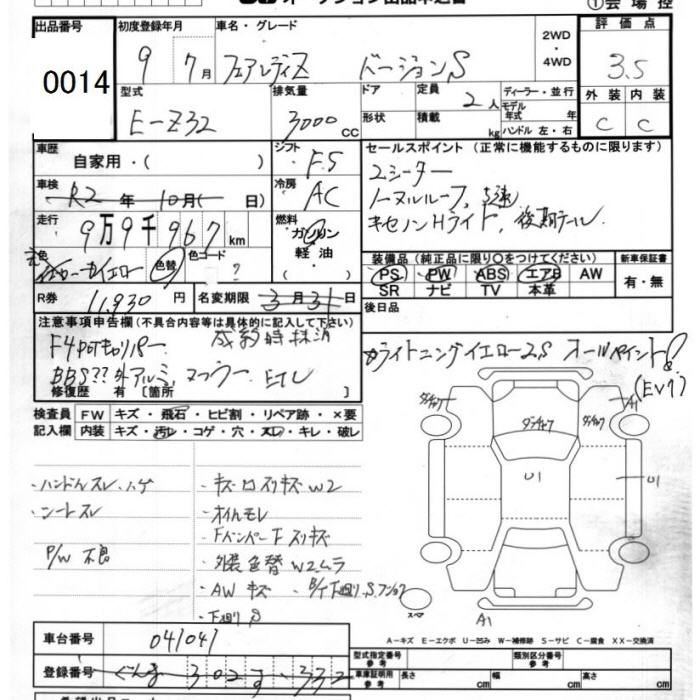 出品番号 初度登録年月 車名・グレード 2WD ・ 4WD 評価点
0014 9 7月 フェアレディZ バージョンS 3.5
型式 排気量 ドア 定員 2人 ディーラー・並行 外装 内装
E-Z32 3000cc 形状 積載 kg モデル年式 年 C C
ハンドル 左・右
車歴 自家用・( ) シフト F5 セールスポイント (正常に機能するものに限ります)
車検 R2年 10月( 日) 冷房 AC 2シーター
ノーマルルーフ, 5速
走行 9万9千967km 燃料 ガソリン・軽油 キセノンHライト, 後期テール
色 イエロー 色替 色コード ?
装備品 (純正品に限り〇をつけてください) 新車保証書
PS PW ABS エアB AW 有・無
SR ナビ TV 本革
R券 11,930円 名変期限 3月31日 後日品
注意事項申告欄 (不具合内容等は具体的に記入して下さい)
F4POTキャリパー
BBS?? 外アルミ, マフラー ETC
修復歴 有[箇所 ]
ライトニングイエロー2S オールペイント!
検査員記入欄 FW キズ・飛石・ヒビ割・リペア跡・×要
内装 キズ・汚レ・コゲ・穴・スレ・キレ・破レ
・ハンドルスレ、ハゲ
・シートスレ
P/W 不良
・キズ ロスリキズ W2
・オイルモレ
・FバンパーFスリキズ
・外装色替 W2ムラ
・AW キズ
・下廻りS
U1
U1
A1
A1
スペア
A-キズ E-エクボ U-凹み W-補修跡 S-サビ C-腐食 XX-交換済
車台番号 041041
登録番号 ぐんま 302 す 332
型式指定番号 参考 類別区分番号 参考
車庫証明用 参考 長さ cm 幅 cm 高さ cm